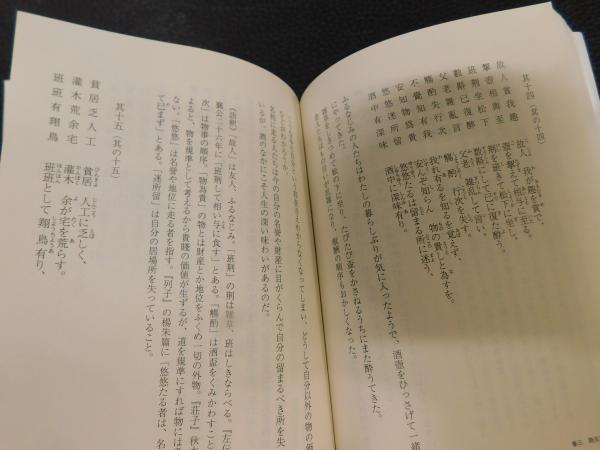 其十四(その十四)
故人賞我趣 故人 我が趣を賞で、
挈壺相與至 壺を挈えて相与に至る。
班荊坐松下 荊を班きて松下に坐し、
數斟已復酔 数斟にして已に復た酔う。
父老雜亂言 父老 雑乱して言い、
觴酌失行次 觴酌 行次を失す。
不覺知有我 我れ有るを知るを覚えず、
安知物爲貴 安んぞ知らん 物の貴しと為すを。
悠悠迷所留 悠悠たるは留まる所に迷う、
酒中有深味 酒中に深味有り。
ふるなじみの人たちはわたしの暮らしぶりが気に入ったようで、酒壺をひっさげて一緒
にやってきた。
松の下に坐り、たびたび壺をかさねるうちにまた酔うてきた。
献酬の順序もおかしくなった。
なくなってしまい、どうして自分以外の物の価
名利に走る人たちは今の自分の名誉や財産に目がくらんで自分の留まるべき所を失
が、酒のなかにこそ人生の深い味わいがあるのだ。
《語釈》「故人」は友人、ふるなじみ。「班荊」の荊は雑草、班はしきならべる。『左伝
襄公二十六年に「班荊して相い与に食す」とある。「觴酌」は酒盃をくみかわすこと
次」は物事の順序。「物為貴」の物とは財産とか地位をふくめ一切の外物。『荘子』秋水
よると、物を規準として考えるから貴賤の価値が生ずるが、道を規準にすれば物には貴
ない。「悠悠」は名誉や地位に走る者を指す。『列子』の楊朱篇に「悠悠たる者は、名
て已まず」とある。「迷所留」は自分の居場所を失っていること。
其十五(その十五)
貧居乏人工 貧居 人工に乏しく、
灌木荒余宅 灌木 余が宅を荒らす。
班班有翔鳥 班班として 翔鳥有り、